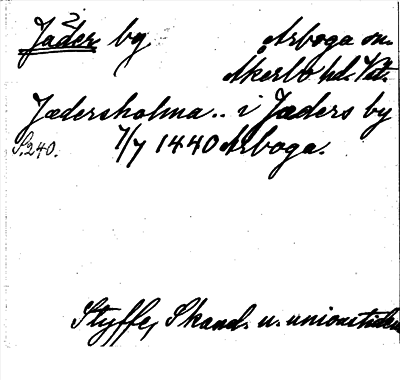 2
Jäder by Arboga sn.
Åkerbo hd. Vstl.
Jædersholma .. i Jæders by
S. 240. 7/7 1440 Arboga.
Styffe, Skand. u. unionstiden